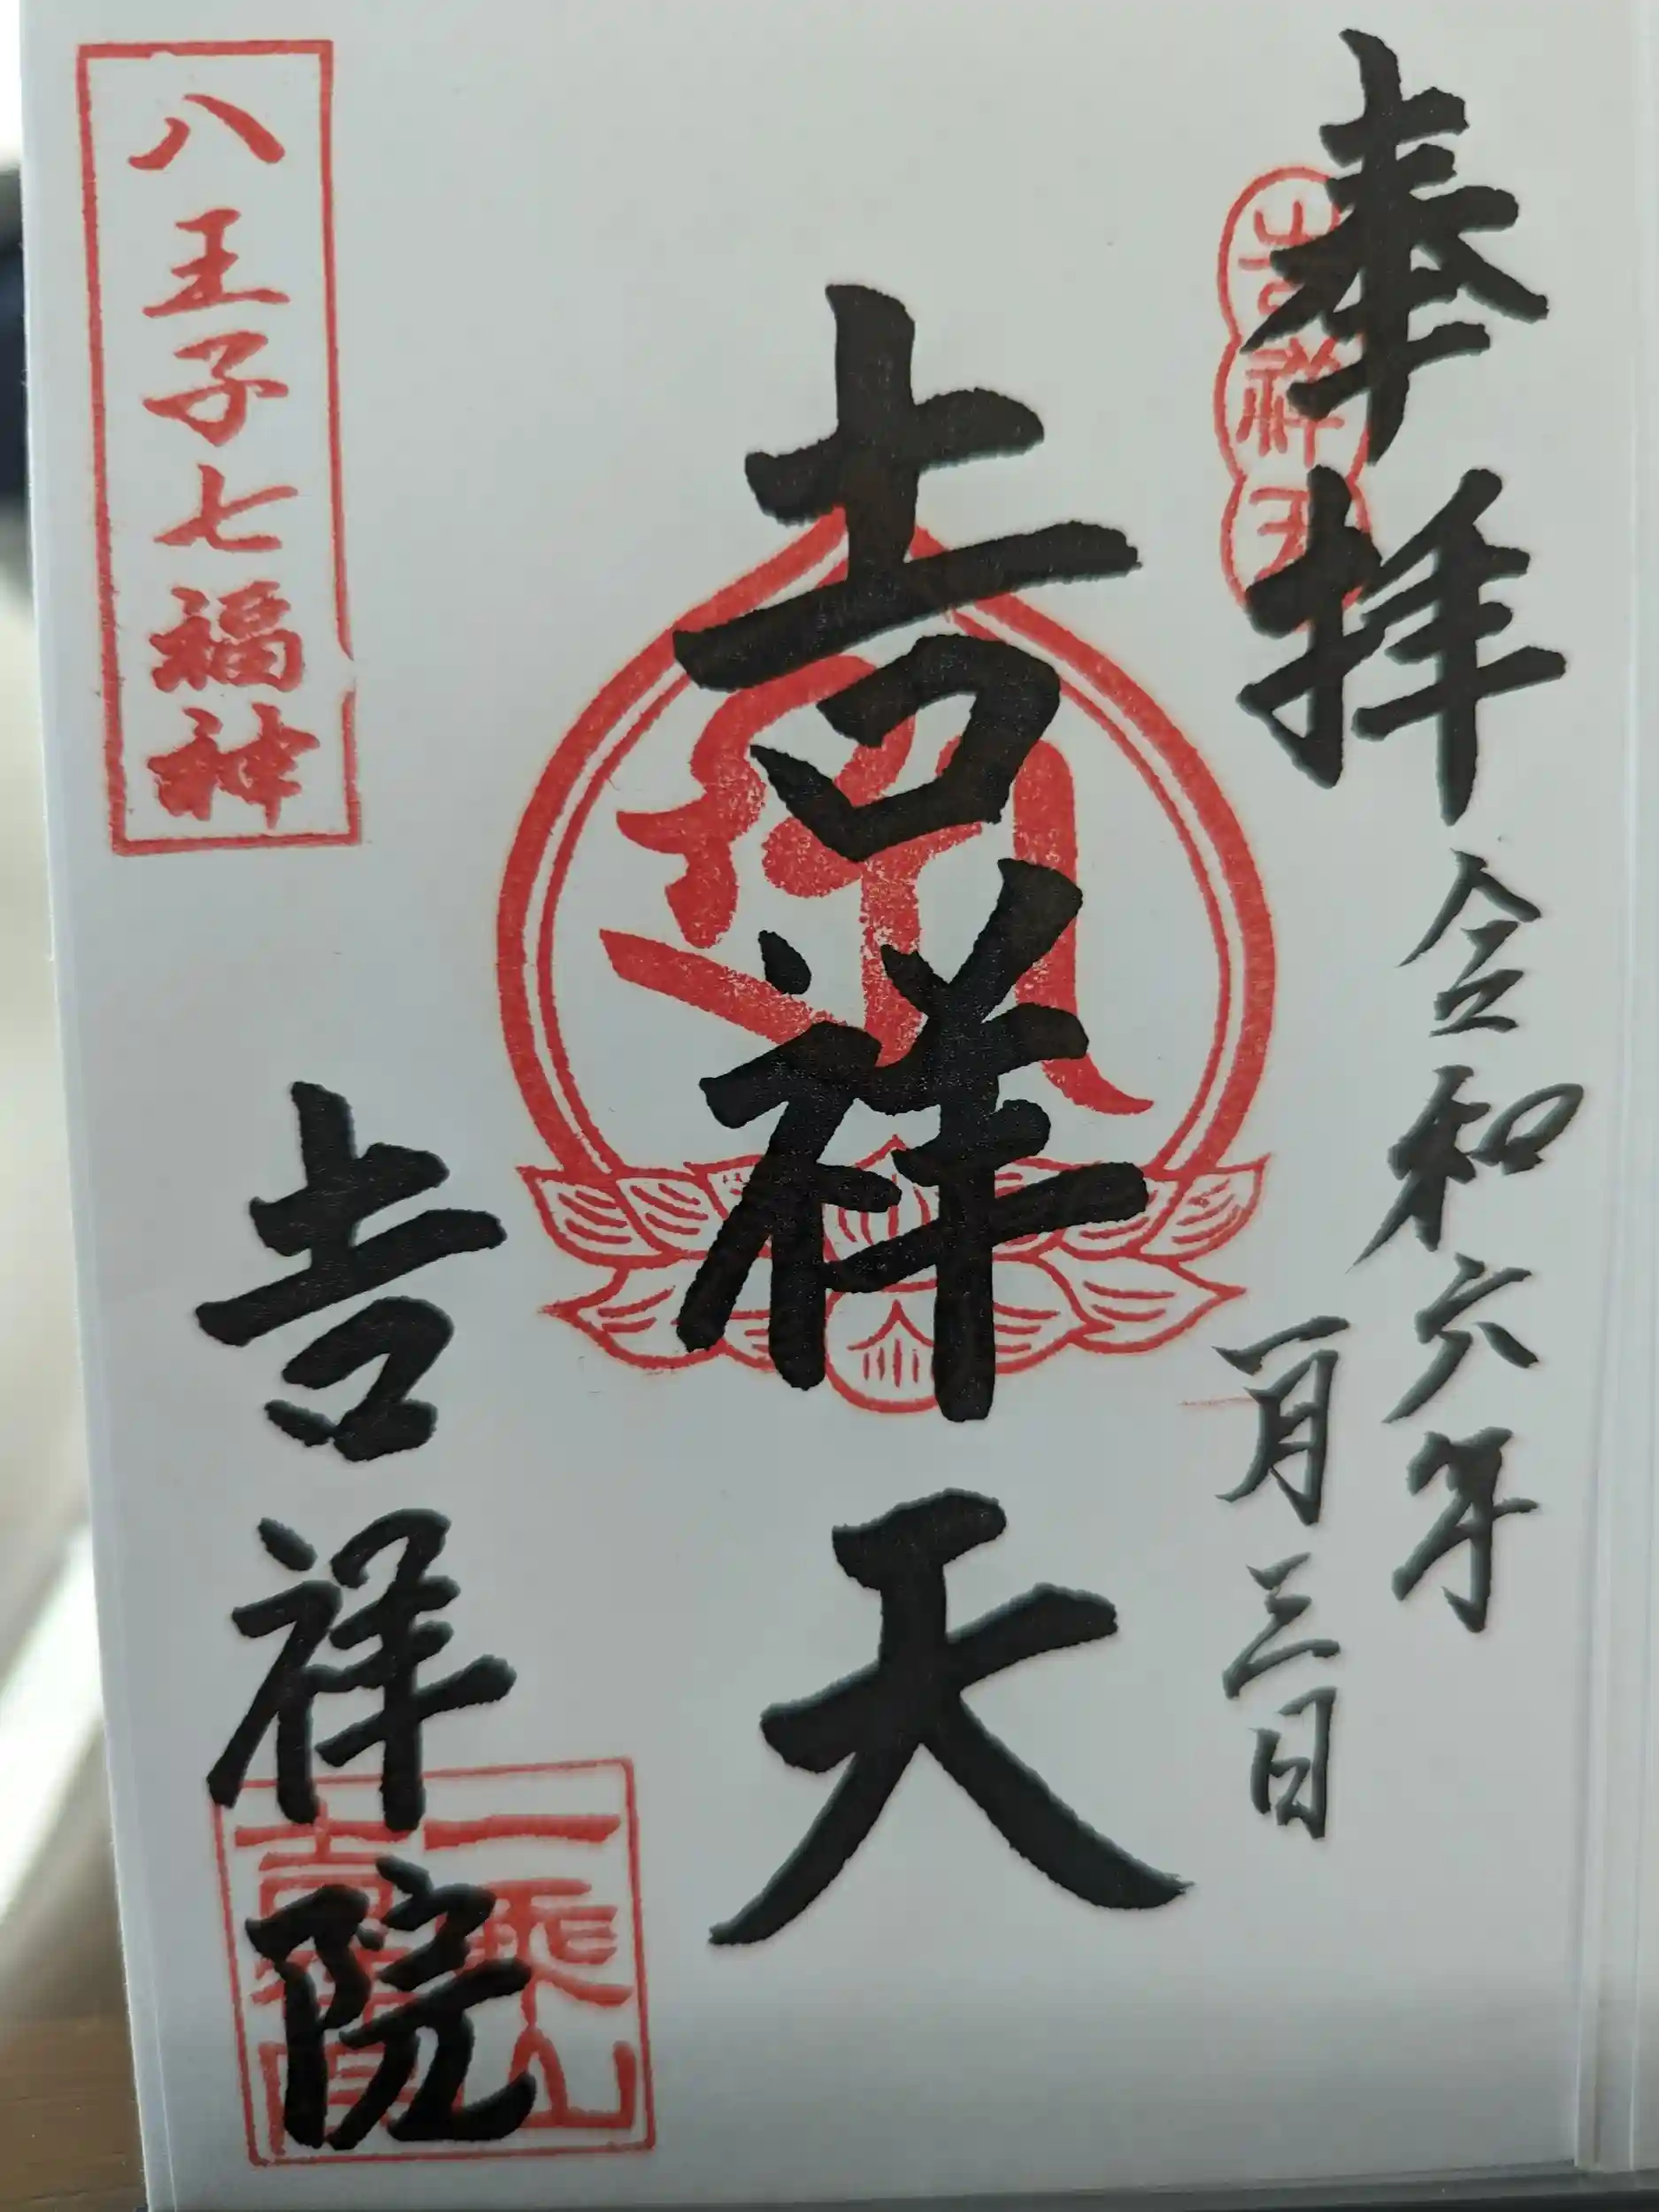 奉拝
令和六年
一月三日
吉祥天
吉祥天
八王子七福神
吉祥院
一乗山
吉祥院